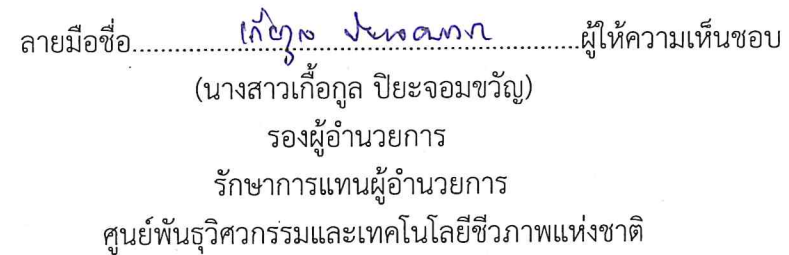 ลายมือชื่อ................เกื้อกูล ปิยะจอมขวัญ................ผู้ให้ความเห็นชอบ
(นางสาวเกื้อกูล ปิยะจอมขวัญ)
รองผู้อำนวยการ
รักษาการแทนผู้อำนวยการ
ศูนย์พันธุวิศวกรรมและเทคโนโลยีชีวภาพแห่งชาติ